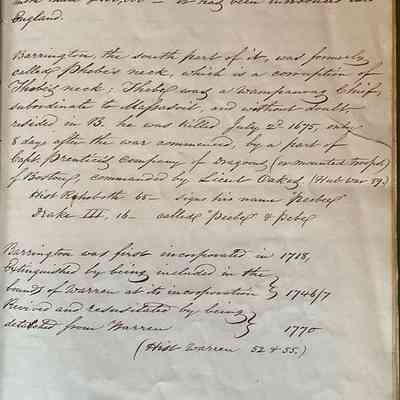 England.
Barrington, the south part of it, was formerly
called Phebe's neck, which is a corruption of
Thebe's neck; Thebe was a Wampanoag Chief,
subordinate to Massasoit, and without doubt,
resided in B. he was killed July 2d 1675, only
8 days after the war commenced, by a part of
Capt. Prentice's Company of Dragoons, (or mounted troops)
of Boston, commanded by Lieut Oakes, (Hub. war 89.)
Hist Rehoboth 65 - signs his name "peebee"
Drake III, 16 - called "peebe" & pebe
Barrington was first incorporated in 1718,
Extinguished by being included in the
bounds of Warren at its incorporation } 1746/7
Revived and resuscitated by being
detached from Warren } 1770
(Hist Warren 52 & 55.)